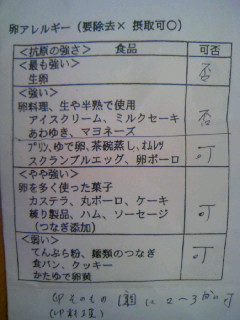 卵アレルギー（要除去× 摂取可○）
<抗原の強さ> 食品 可否
<最も強い>
生卵 否
<強い>
卵料理、生や半熟で使用
アイスクリーム、ミルクセーキ
あわゆき、マヨネーズ 否
プリン、ゆで卵、茶碗蒸し、オムレツ
スクランブルエッグ、卵ボーロ 可
<やや強い>
卵を多く使った菓子
カステラ、丸ボーロ、ケーキ
練り製品、ハム、ソーセージ
（つなぎ添加） 可
<弱い>
てんぷら粉、麺類のつなぎ
食パン、クッキー
かたゆで卵黄 可
卵そのもの は 2〜3 可